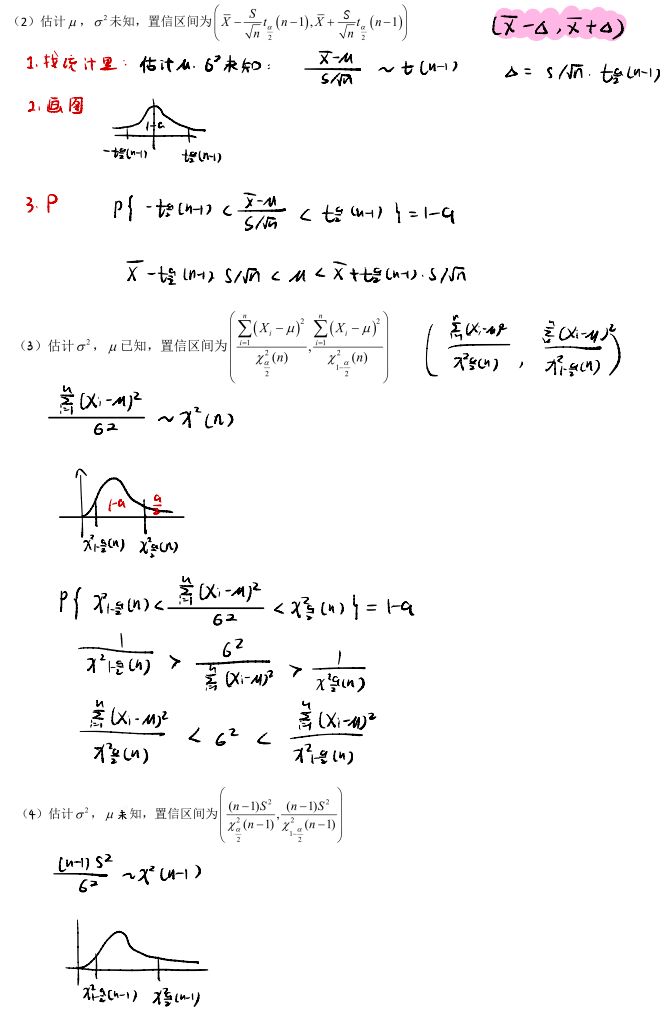 (2) 估计 μ，σ² 未知，置信区间为 ( X̄ − S/√n t_{α/2}(n−1), X̄ + S/√n t_{α/2}(n−1) )
(X̄ − Δ, X̄ + Δ)
1. 找统计量： 估计μ. σ²未知： (X̄−μ)/(S/√n) ~ t(n−1)
Δ = S/√n · t_{α/2}(n−1)
2. 画图
1−α
−t_{α/2}(n−1) t_{α/2}(n−1)
3. P P{ −t_{α/2}(n−1) < (X̄−μ)/(S/√n) < t_{α/2}(n−1) } = 1−α
X̄ − t_{α/2}(n−1) S/√n < μ < X̄ + t_{α/2}(n−1) · S/√n
(3) 估计 σ²，μ 已知，置信区间为 ( ∑_{i=1}^{n}(X_i − μ)² / χ²_{α/2}(n), ∑_{i=1}^{n}(X_i − μ)² / χ²_{1−α/2}(n) )
( ∑_{i=1}^{n}(X_i−μ)² / χ²_{α/2}(n), ∑_{i=1}^{n}(X_i−μ)² / χ²_{1−α/2}(n) )
∑_{i=1}^{n}(X_i−μ)² / σ² ~ χ²(n)
1−α α/2
χ²_{1−α/2}(n) χ²_{α/2}(n)
P{ χ²_{1−α/2}(n) < ∑_{i=1}^{n}(X_i−μ)² / σ² < χ²_{α/2}(n) } = 1−α
1 / χ²_{1−α/2}(n) > σ² / ∑_{i=1}^{n}(X_i−μ)² > 1 / χ²_{α/2}(n)
∑_{i=1}^{n}(X_i−μ)² / χ²_{α/2}(n) < σ² < ∑_{i=1}^{n}(X_i−μ)² / χ²_{1−α/2}(n)
(4) 估计 σ²，μ 未知，置信区间为 ( (n−1)S² / χ²_{α/2}(n−1), (n−1)S² / χ²_{1−α/2}(n−1) )
(n−1)S² / σ² ~ χ²(n−1)
χ²_{1−α/2}(n−1) χ²_{α/2}(n−1)